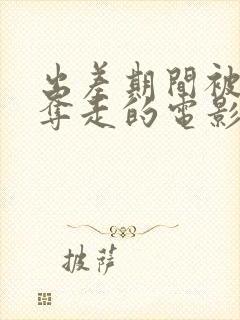 出差期間被
奪走的電影
披薩